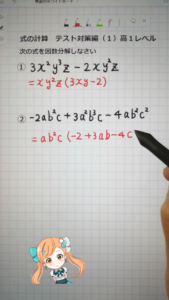 式の計算 テスト対策編(1)高1レベル
次の式を因数分解しなさい
① 3x²y³z - 2xy²z
= xy²z (3xy - 2)
② -2ab²c + 3a²b³c - 4ab²c²
= ab²c (-2 + 3ab - 4c